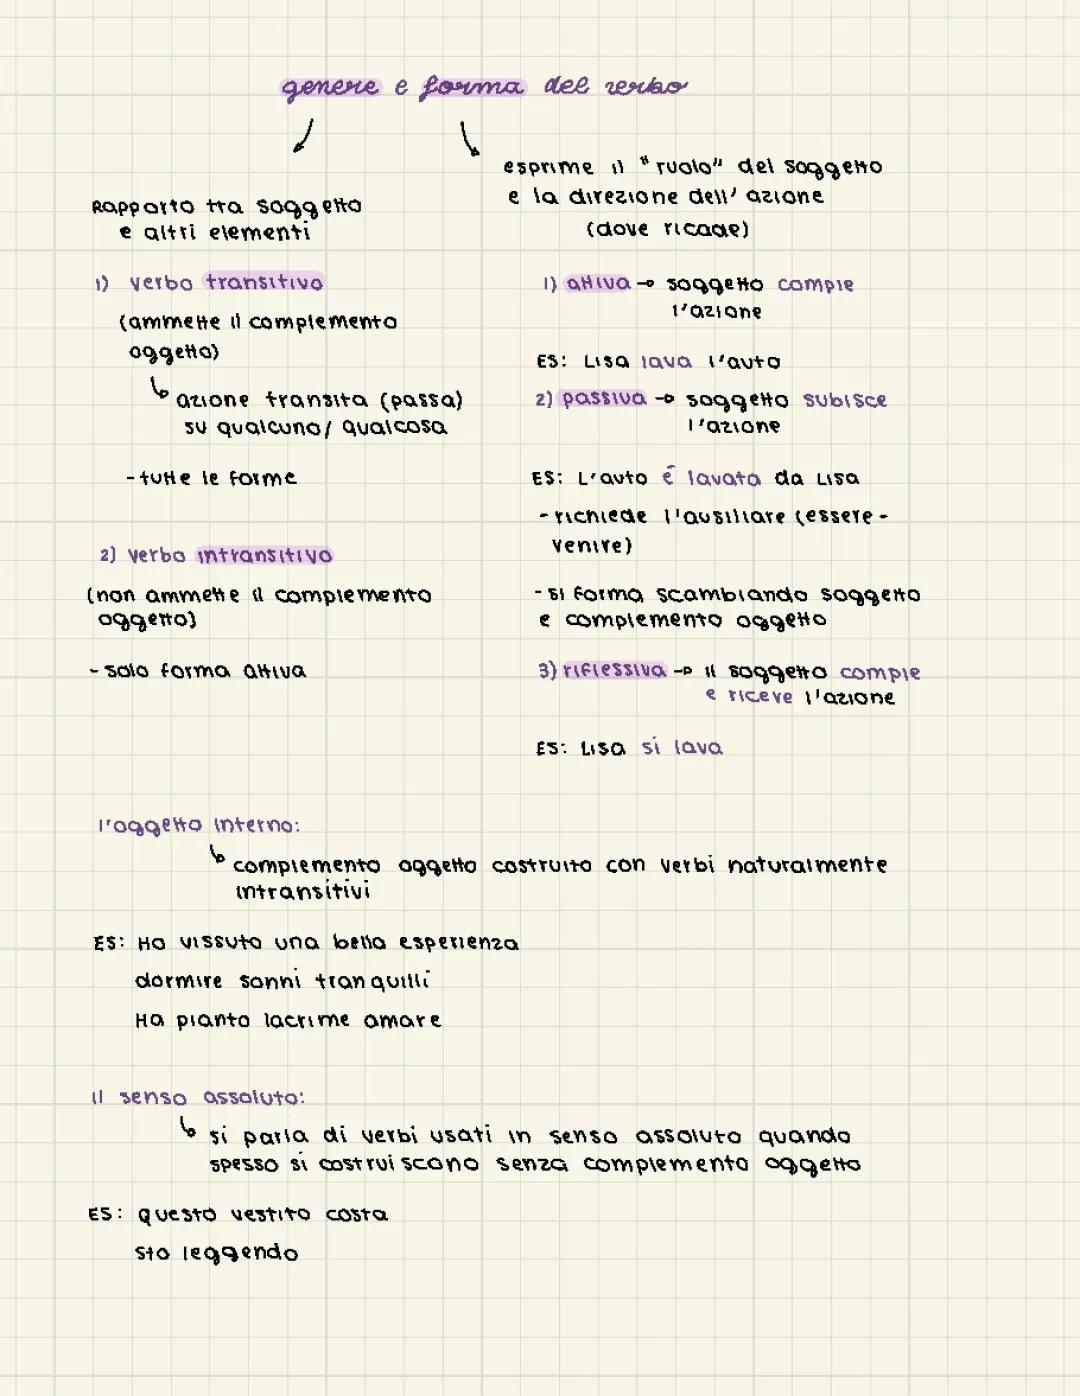 genere e forma del verbo
Rapporto tra soggetto
e altri elementi
1) verbo transitivo
(ammette il complemento
oggetto)
azione transita (passa)
su qualcuno/ qualcosa
- tutte le forme
2) verbo intransitivo
(non ammette il complemento
oggetto)
- solo forma attiva
esprime il "ruolo" del soggetto
e la direzione dell' azione
(dove ricade)
1) attiva → soggetto compie
l'azione
ES: Lisa lava l'auto
2) passiva → soggetto subisce
l'azione
ES: L'auto é lavata da Lisa
- richiede l'ausiliare (essere -
venire)
- si forma scambiando soggetto
e complemento oggetto
3) riflessiva → il soggetto compie
e riceve l'azione
ES: Lisa si lava
l'oggetto interno:
complemento oggetto costruito con verbi naturalmente
intransitivi
ES: Ha vissuto una bella esperienza
dormire sonni tranquilli
Ha pianto lacrime amare
il senso assoluto:
si parla di verbi usati in senso assoluto quando
spesso si costruiscono senza complemento oggetto
ES: questo vestito costa
sto leggendo